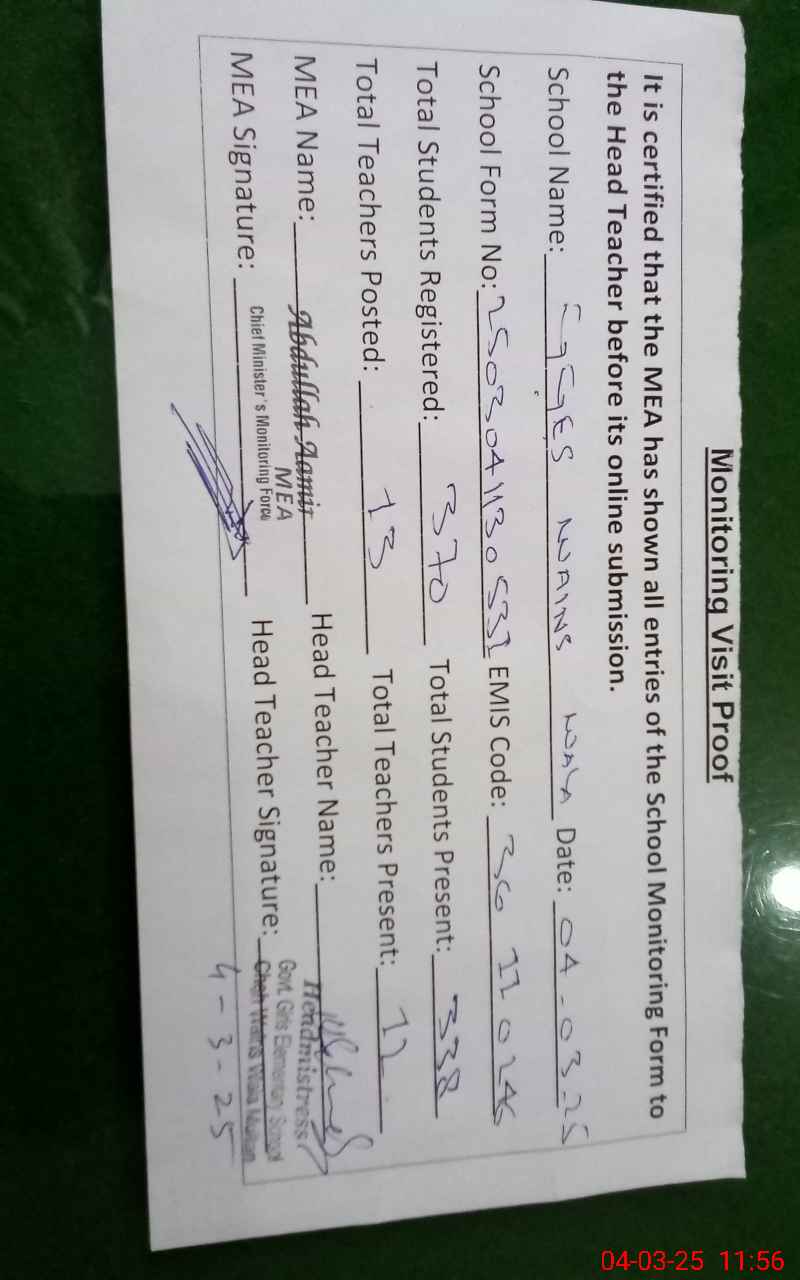 Monitoring Visit Proof
It is certified that the MEA has shown all entries of the School Monitoring Form to
the Head Teacher before its online submission.
School Name: GGES WAINS WALA Date: 04-03-25
School Form No: 2503041130531 EMIS Code: 36110246
Total Students Registered: 370 Total Students Present: 338
Total Teachers Posted: 13 Total Teachers Present: 12
MEA Name: Abdullah Aamir Head Teacher Name:
MEA
Chief Minister's Monitoring Force
Headmistress
Govt. Girls Elementary School
Chah Wains Wala Multan
MEA Signature: Head Teacher Signature:
4-3-25
04-03-25 11:56